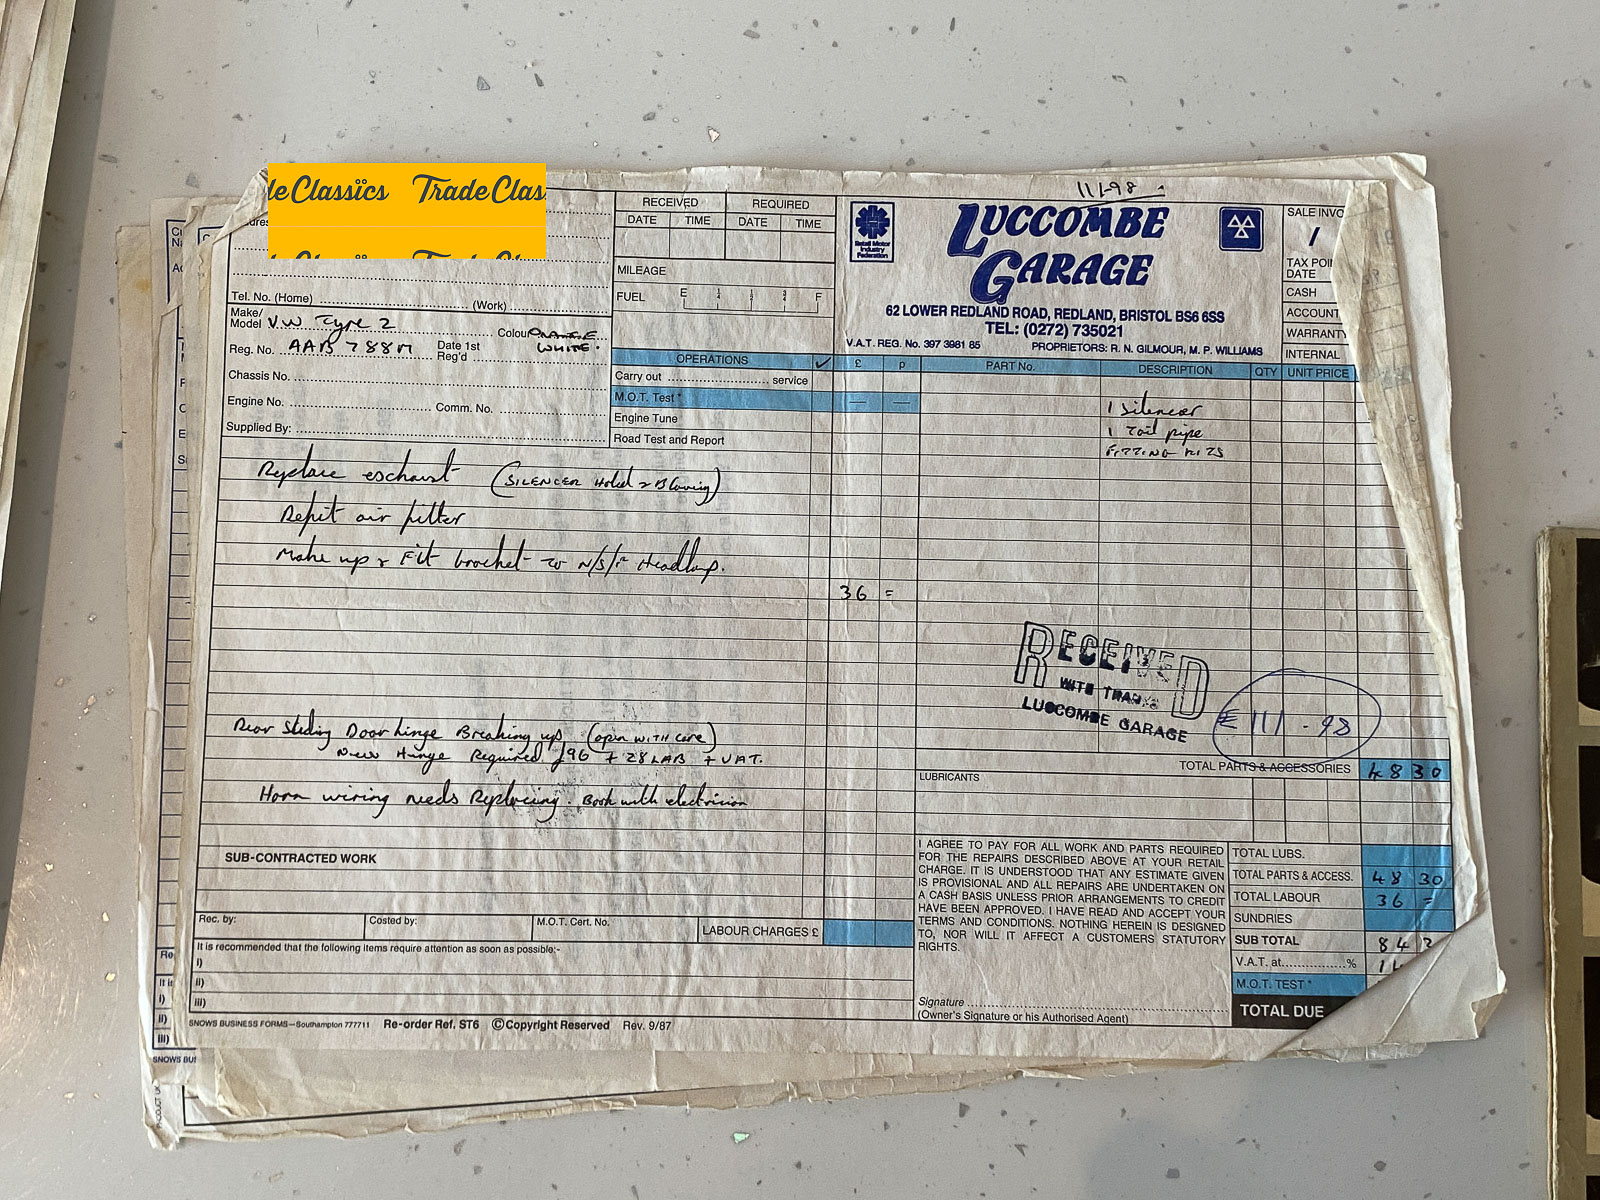 deClassics TradeClas
RECEIVED REQUIRED
DATE TIME DATE TIME
MILEAGE
FUEL E 1/4 1/2 3/4 F
Tel. No. (Home) (Work)
Make/
Model VW Type 2 Colour ORANGE
WHITE.
Reg. No. AAB 788M Date 1st
Reg'd
Chassis No.
Engine No. Comm. No.
Supplied By:
111-98
Retail Motor
Industry
Federation
LUCCOMBE
GARAGE
62 LOWER REDLAND ROAD, REDLAND, BRISTOL BS6 6SS
TEL: (0272) 735021
V.A.T. REG. No. 397 3981 85 PROPRIETORS: R. N. GILMOUR, M. P. WILLIAMS
SALE INVO
TAX POI
DATE
CASH
ACCOUNT
WARRANT
INTERNAL
OPERATIONS ✓ £ p PART No. DESCRIPTION QTY UNIT PRICE
Carry out service
M.O.T. Test* — —
Engine Tune
Road Test and Report
1 Silencer
1 Tail pipe
FITTING KITS
Replace exhaust (SILENCER Holed & Blowing)
Refit air filter
Make up & Fit bracket to N/S/F Headlamp.
36 =
RECEIVED
WITH THANKS
LUCCOMBE GARAGE
£111-98
Rear Sliding Door hinge Breaking up (open WITH care)
New Hinge Required £96 + 28 LAB + VAT.
Horn wiring needs Replacing. Book with electrician
TOTAL PARTS & ACCESSORIES 48 30
LUBRICANTS
SUB-CONTRACTED WORK
Rec. by: Costed by: M.O.T. Cert. No. LABOUR CHARGES £
It is recommended that the following items require attention as soon as possible:-
i)
ii)
iii)
I AGREE TO PAY FOR ALL WORK AND PARTS REQUIRED
FOR THE REPAIRS DESCRIBED ABOVE AT YOUR RETAIL
CHARGE. IT IS UNDERSTOOD THAT ANY ESTIMATE GIVEN
IS PROVISIONAL AND ALL REPAIRS ARE UNDERTAKEN ON
A CASH BASIS UNLESS PRIOR ARRANGEMENTS TO CREDIT
HAVE BEEN APPROVED. I HAVE READ AND ACCEPT YOUR
TERMS AND CONDITIONS. NOTHING HEREIN IS DESIGNED
TO, NOR WILL IT AFFECT A CUSTOMERS STATUTORY
RIGHTS.
Signature
(Owner's Signature or his Authorised Agent)
TOTAL LUBS.
TOTAL PARTS & ACCESS. 48 30
TOTAL LABOUR 36 =
SUNDRIES
SUB TOTAL 84 3
V.A.T. at % 14
M.O.T. TEST*
TOTAL DUE
SNOWS BUSINESS FORMS—Southampton 777711 Re-order Ref. ST6 © Copyright Reserved Rev. 9/87
SNOWS BUS